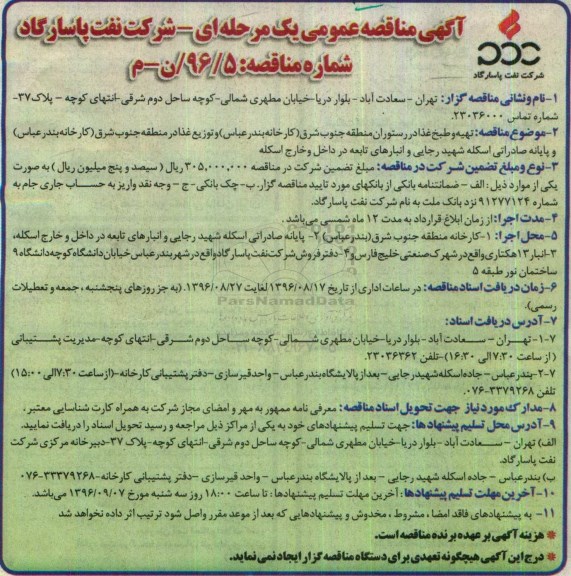 آگهی مناقصه عمومی یک مرحله ای - شرکت نفت پاسارگاد
شماره مناقصه: ۹۶/۵/ن-م
شرکت نفت پاسارگاد
۱-نام ونشانی مناقصه گزار: تهران - سعادت آباد - بلوار دریا-خیابان مطهری شمالی-کوچه ساحل دوم شرقی-انتهای کوچه - پلاک۳۷-
شماره تماس ۲۳۰۳۶۰۰۰
۲-موضوع مناقصه: تهیه و طبخ غذا در رستوران منطقه جنوب شرق (کارخانه بندرعباس) و توزیع غذا در منطقه جنوب شرق (کارخانه بندرعباس)
و پایانه صادراتی اسکله شهید رجایی و انبارهای تابعه در داخل و خارج اسکله
۳-نوع ومبلغ تضمین شرکت در مناقصه: مبلغ تضمین شرکت در مناقصه ۳۰۵,۰۰۰,۰۰۰ ریال ( سیصد و پنج میلیون ریال ) به صورت
یکی از موارد ذیل : الف - ضمانتنامه بانکی از بانکهای مورد تایید مناقصه گزار. ب-چک بانکی-ج - وجه نقد واریز به حساب جاری جام به
شماره ۹۱۲۷۷۱۲۴ نزد بانک ملت به نام شرکت نفت پاسارگاد.
۴-مدت اجرا: از زمان ابلاغ قرارداد به مدت ۱۲ ماه شمسی می‌باشد.
۵-محل اجرا: ۱-کارخانه منطقه جنوب شرق (بندرعباس) ۲- پایانه صادراتی اسکله شهید رجایی و انبارهای تابعه در داخل و خارج اسکله،
۳-انبار ۱۳هکتاری واقع در شهرک صنعتی خلیج فارس و ۴- دفتر فروش شرکت نفت پاسارگاد واقع در شهر بندرعباس خیابان دانشگاه کوچه دانشگاه ۹
ساختمان نور طبقه ۵
۶-زمان دریافت اسناد مناقصه: در ساعات اداری از تاریخ ۱۳۹۶/۰۸/۱۷ لغایت ۱۳۹۶/۰۸/۲۷. (به جز روزهای پنجشنبه ، جمعه و تعطیلات
رسمی).
۷-آدرس دریافت اسناد:
۷-۱-تهران - سعادت آباد - بلوار دریا-خیابان مطهری شمالی-کوچه ساحل دوم شرقی-انتهای کوچه-مدیریت پشتیبانی
( از ساعت ۷:۳۰ الی ۱۶:۳۰)-تلفن ۲۳۰۳۶۳۶۲
۷-۲-بندرعباس - جاده اسکله شهید رجایی - بعد از پالایشگاه بندرعباس - واحد قیر سازی-دفتر پشتیبانی کارخانه-(از ساعت ۷:۳۰ الی ۱۵:۰۰)
تلفن ۳۳۷۹۲۶۸-۰۷۶.
۸-مدارک مورد نیاز جهت تحویل اسناد مناقصه: معرفی نامه ممهور به مهر و امضای مجاز شرکت به همراه کارت شناسایی معتبر ،
۹-آدرس محل تسلیم پیشنهادها: جهت تسلیم پیشنهادهای خود به یکی از مراکز ذیل مراجعه و رسید تحویل اسناد را دریافت نمایید.
الف) تهران - سعادت آباد -بلوار دریا-خیابان مطهری شمالی-کوچه ساحل دوم شرقی-انتهای کوچه-پلاک ۳۷-دبیرخانه مرکزی شرکت
نفت پاسارگاد.
ب) بندرعباس - جاده اسکله شهید رجایی - بعد از پالایشگاه بندرعباس - واحد قیرسازی -دفتر پشتیبانی کارخانه-۳۳۳۷۹۲۶۸-۰۷۶
۱۰-آخرین مهلت تسلیم پیشنهادها: آخرین مهلت تسلیم پیشنهادها : تا ساعت ۱۸:۰۰ روز سه شنبه مورخ ۱۳۹۶/۰۹/۰۷ می‌باشد.
۱۱- به پیشنهادهای فاقد امضا ، مشروط ، مخدوش و پیشنهادهایی که بعد از موعد مقرر واصل شود ترتیب اثر داده نخواهد شد
* هزینه آگهی بر عهده برنده مناقصه است.
* درج این آگهی هیچگونه تعهدی برای دستگاه مناقصه گزار ایجاد نمی نماید.
ParsNamadData